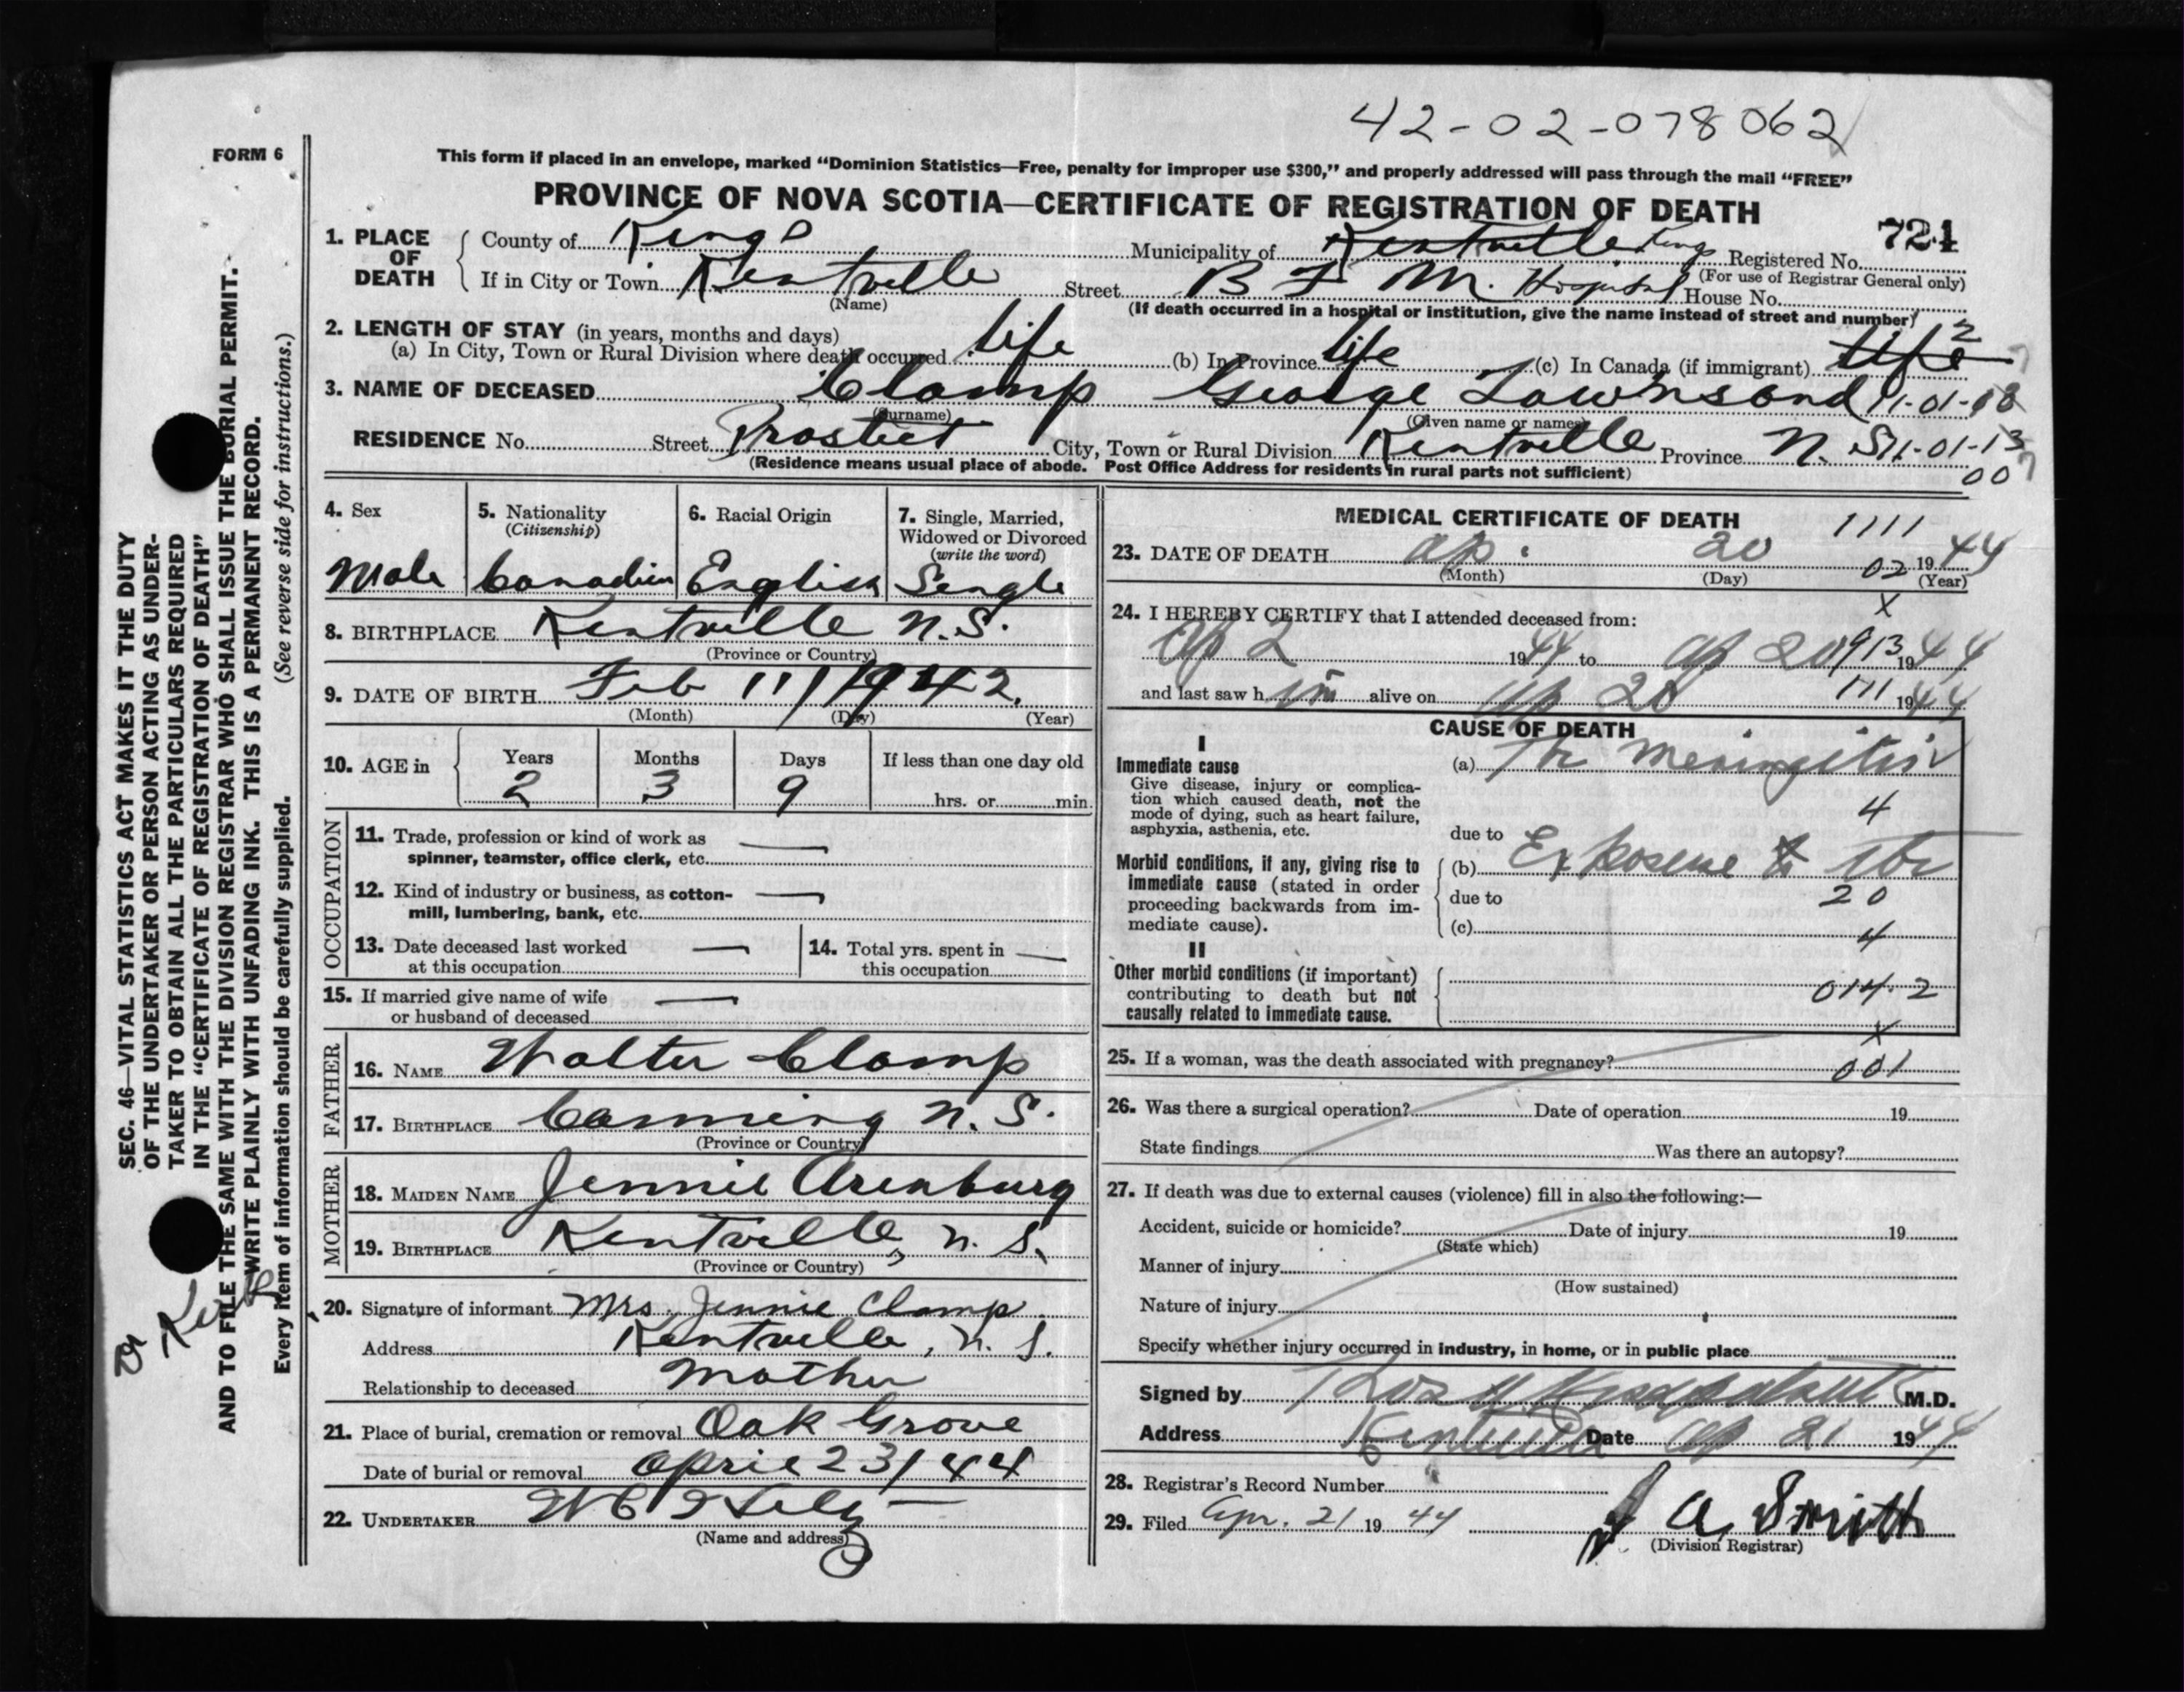 42-02-078062
FORM 6
This form if placed in an envelope, marked "Dominion Statistics—Free, penalty for improper use $300," and properly addressed will pass through the mail "FREE"
PROVINCE OF NOVA SCOTIA—CERTIFICATE OF REGISTRATION OF DEATH
721
1. PLACE OF DEATH { County of Kings Municipality of Kentville, Kings Registered No.
(For use of Registrar General only)
If in City or Town Kentville Street B F M. Hospital House No.
(Name) (If death occurred in a hospital or institution, give the name instead of street and number)
2. LENGTH OF STAY (in years, months and days)
(a) In City, Town or Rural Division where death occurred life (b) In Province life (c) In Canada (if immigrant) life 2
3. NAME OF DECEASED Clamp George Townsand 11-01-13
(Surname) (Given name or names)
RESIDENCE No. Street Prostect City, Town or Rural Division Kentville Province N. S. 11-01-13
(Residence means usual place of abode. Post Office Address for residents in rural parts not sufficient)
007
4. Sex 5. Nationality (Citizenship) 6. Racial Origin 7. Single, Married, Widowed or Divorced (write the word)
Male Canadian English Single
8. BIRTHPLACE Kentville N.S.
(Province or Country)
9. DATE OF BIRTH Feb 11/1942.
(Month) (Day) (Year)
10. AGE in { Years Months Days If less than one day old
2 3 9 hrs. or min.
OCCUPATION
11. Trade, profession or kind of work as spinner, teamster, office clerk, etc. —
12. Kind of industry or business, as cotton-mill, lumbering, bank, etc. —
13. Date deceased last worked at this occupation — 14. Total yrs. spent in this occupation —
15. If married give name of wife or husband of deceased —
FATHER
16. NAME Walter Clamp
17. BIRTHPLACE Canning N.S.
(Province or Country)
MOTHER
18. MAIDEN NAME Jennie Arenburg
19. BIRTHPLACE Kentville, N. S.
(Province or Country)
20. Signature of informant Mrs. Jennie Clamp
Address Kentville, N. S.
Relationship to deceased Mother
21. Place of burial, cremation or removal Oak Grove
Date of burial or removal April 23/44
22. UNDERTAKER
(Name and address)
MEDICAL CERTIFICATE OF DEATH
1111
23. DATE OF DEATH Ap. 20 02 1944
(Month) (Day) (Year)
X
24. I HEREBY CERTIFY that I attended deceased from:
Ap 2 1944 to Ap 20 913 1944
and last saw him alive on Ap 20 111 1944
CAUSE OF DEATH
I
Immediate cause
Give disease, injury or complication which caused death, not the mode of dying, such as heart failure, asphyxia, asthenia, etc.
(a) Tbc Meningitis
4
due to
Morbid conditions, if any, giving rise to immediate cause (stated in order proceeding backwards from immediate cause).
(b) Exposure to Tbc
due to 20
(c) 4
II
Other morbid conditions (if important) contributing to death but not causally related to immediate cause.
014.2
X
25. If a woman, was the death associated with pregnancy? 001
26. Was there a surgical operation? Date of operation 19
State findings Was there an autopsy?
27. If death was due to external causes (violence) fill in also the following:—
Accident, suicide or homicide? Date of injury 19
(State which)
Manner of injury
(How sustained)
Nature of injury
Specify whether injury occurred in industry, in home, or in public place
Signed by M.D.
Address Kentville Date Ap 21 1944
28. Registrar's Record Number
29. Filed Apr. 21 1944 J A Smith
(Division Registrar)
SEC. 46—VITAL STATISTICS ACT MAKES IT THE DUTY
OF THE UNDERTAKER OR PERSON ACTING AS UNDER-
TAKER TO OBTAIN ALL THE PARTICULARS REQUIRED
IN THE "CERTIFICATE OF REGISTRATION OF DEATH"
AND TO FILE THE SAME WITH THE DIVISION REGISTRAR WHO SHALL ISSUE THE BURIAL PERMIT.
WRITE PLAINLY WITH UNFADING INK. THIS IS A PERMANENT RECORD.
Every item of information should be carefully supplied. (See reverse side for instructions.)